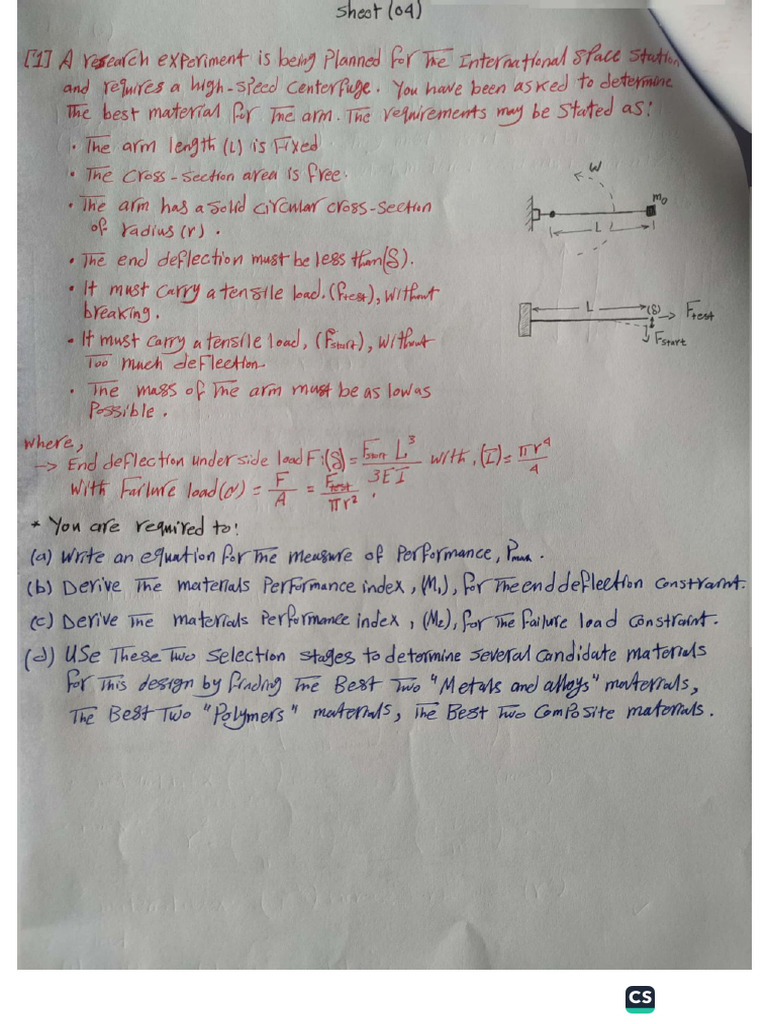 Sheet (04)
[1] A research experiment is being Planned for The International Space Station
and requires a high-speed Centerfuge. You have been asked to determine
The best material for The arm. The requirements may be Stated as:
• The arm length (L) is Fixed
• The Cross-Section area is free.
• The arm has a Solid Circular Cross-Section
of radius (r).
• The end deflection must be less than (δ).
• It must Carry a tensile load. (Ftest), without
breaking.
• It must Carry a tensile load, (Fstart), without
Too much deflection.
• The mass of The arm must be as low as
Possible.
W
mo
L
L
(δ)
Ftest
Fstart
where,
→ End deflection under side load F: (δ) = Fstart L³ / 3EI with, (I) = πr⁴ / 4
With Failure load (σ) = F / A = Ftest / πr².
* You are required to:
(a) Write an equation for The measure of Performance, Pman.
(b) Derive The materials Performance index, (M1), for The end deflection Constraint.
(c) Derive The materials Performance index, (M2), for The Failure load Constraint.
(d) Use These Two Selection Stages to determine Several Candidate materials
for This design by finding The Best Two "Metals and alloys" materials,
The Best Two "Polymers" materials, The Best Two Composite materials.
CS